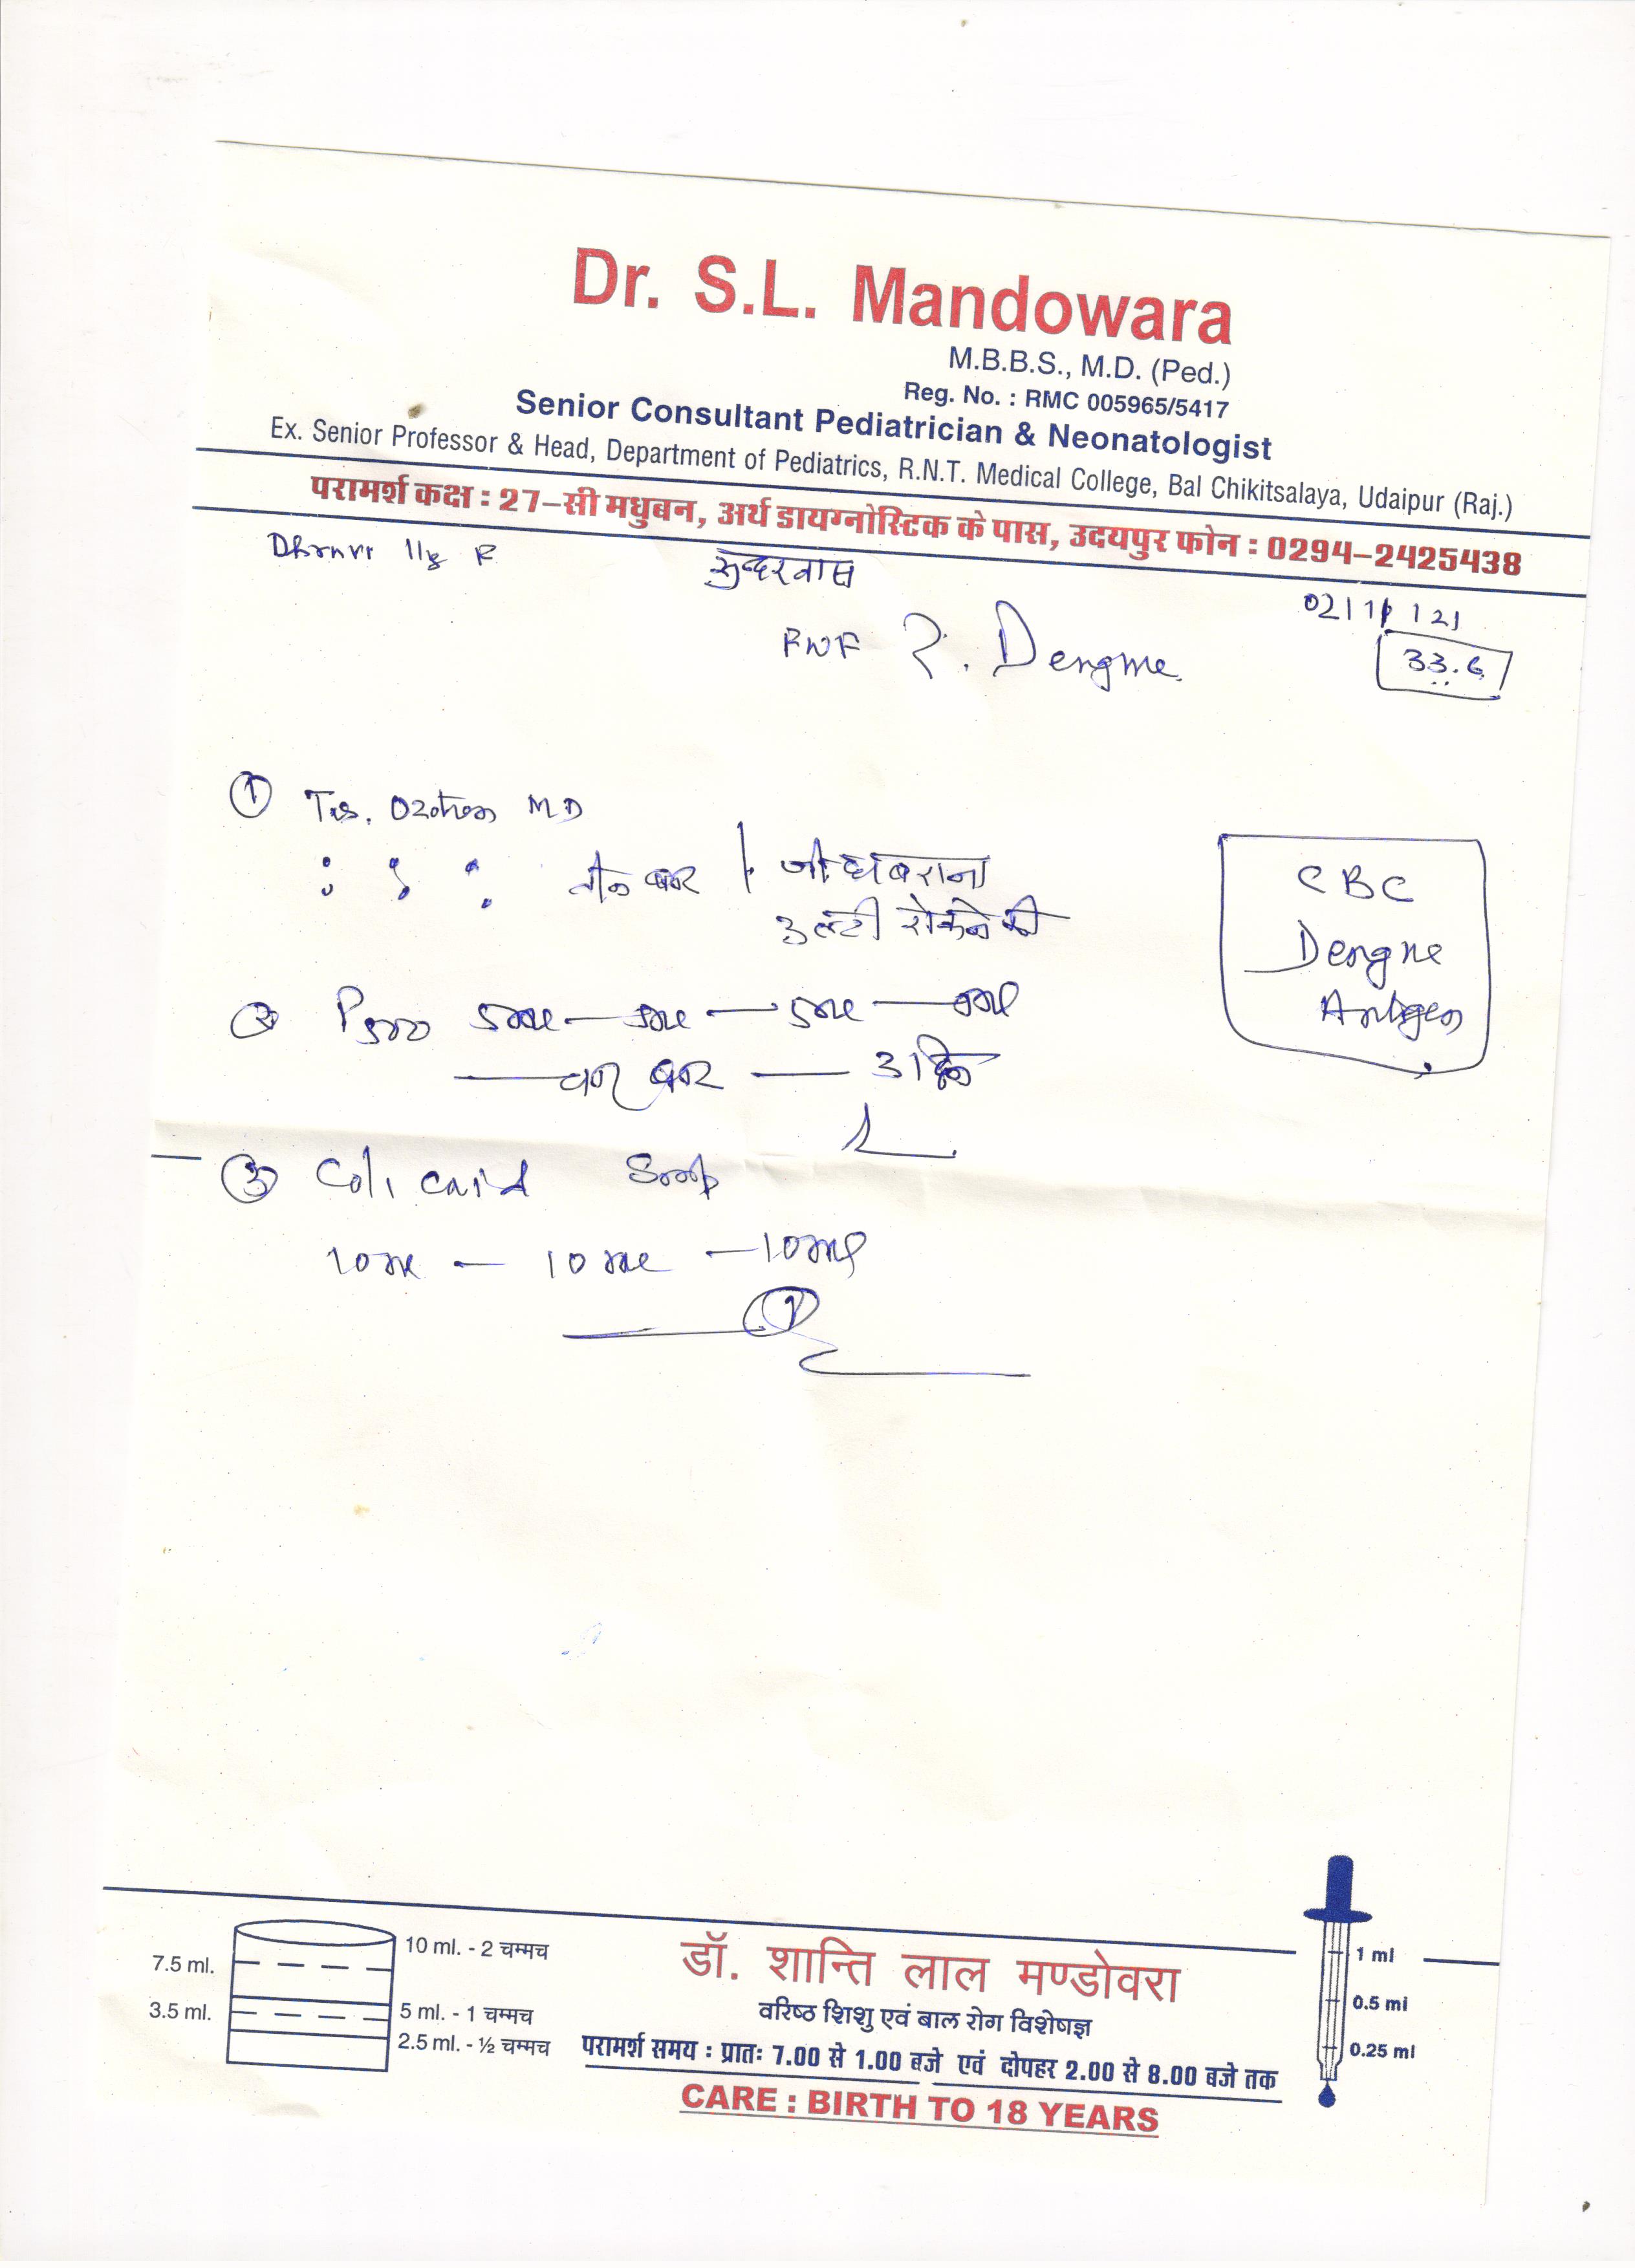 Dr. S.L. Mandowara
M.B.B.S., M.D. (Ped.)
Reg. No. : RMC 005965/5417
Senior Consultant Pediatrician & Neonatologist
Ex. Senior Professor & Head, Department of Pediatrics, R.N.T. Medical College, Bal Chikitsalaya, Udaipur (Raj.)
परामर्श कक्ष : 27-सी मधुबन, अर्थ डायग्नोस्टिक के पास, उदयपुर फोन : 0294-2425438
सुन्दरवास
?. Dengue
33.6
① MD
तीन बार जी घबराना
उल्टी रोकने की
CBC
Dengue
Antigen
② 5ml — 5ml — 5ml — 5ml
— चार बार —
③ Colicaid
10ml — 10ml — 10ml
7.5 ml.
3.5 ml.
10 ml. - 2 चम्मच
5 ml. - 1 चम्मच
2.5 ml. - ½ चम्मच
डॉ. शान्ति लाल मण्डोवरा
वरिष्ठ शिशु एवं बाल रोग विशेषज्ञ
परामर्श समय : प्रातः 7.00 से 1.00 बजे एवं दोपहर 2.00 से 8.00 बजे तक
CARE : BIRTH TO 18 YEARS
1 ml
0.5 ml
0.25 ml